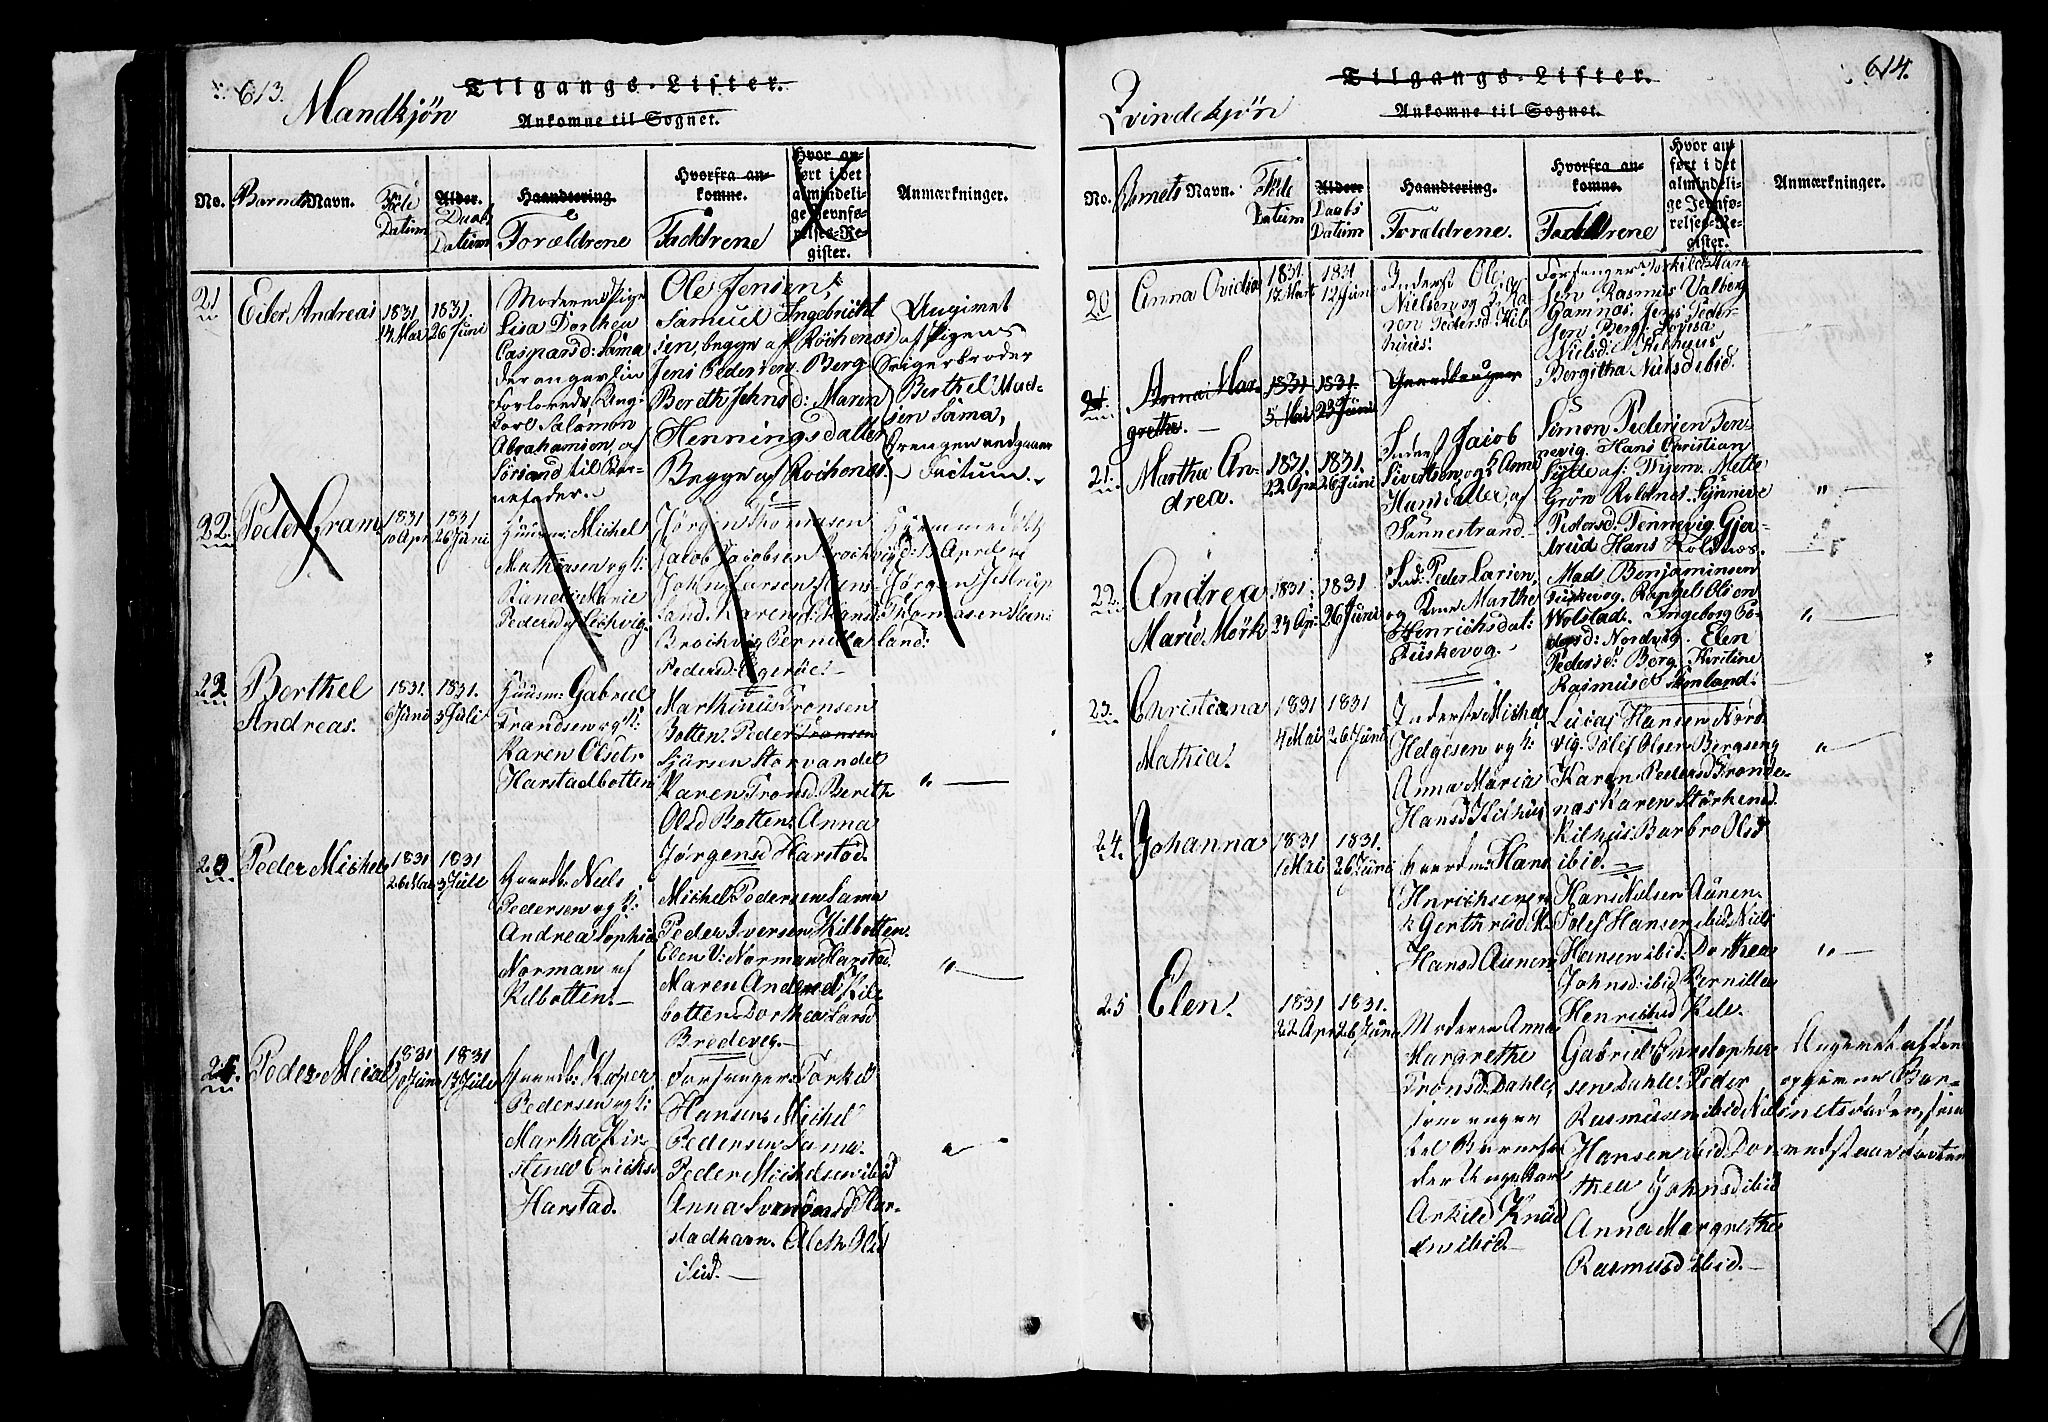 613.
Mandkjøn
Tilgangs-Lister.
Ankomne til Sognet.
No.
Barnets Navn.
Føde Datum
Alder.
Daabs Datum
Haandtering.
Forældrene
Hvorfra ankomne.
Faddrene
Hvor anført i det almindelige Jevnførelses-Register.
Anmærkninger.
21
Eiler Andreas
1831.
14 Mai
1831.
26 Juni
Moderen Pige
Lisa Dorthea
Caspersd: Sama
der angav sin
Forlovede, Ung-
karl Salamon
Abrahamsen, af
til Bar-
nefader.
Ole Jensen,
Samuel Ingebricht
sen, begge af Rochenes
Jens Pedersen Berg
Bereth Johnsd: Maren
Henningsdatter
Begge af Rochenes.
Angivet
af Pigens
Svigerbroder
Berthel Mad-
sen Sama,
Factum.
22.
Peder Gram
1831
10 Apr
1831
26 Juni
Huusm: Michel
Mathiasen og k:
Marie
Pedersd af
Jørgen Thomasen
Jacob Jacobsen Brochvig
John Larsen
land. Karen Hansd
Brochvig Pernilla
Pedersd: Egeröe.
Hjemmedöbt
d: 13 April
Jørgen
Thomasen
land.
22
Berthel
Andreas.
1831.
6 Juni
1831.
3 Juli
Huusm: Gabriel
Trondsen og k:
Karen Olsdtr
Harstadbotten
Marthinus Tronsen
Botten. Peder Tronsen
Sjursen Storvandet
Karen Tronsd. Bereth
Olsd Botten. Anna
Jørgensd Harstad.
" —
23
Peder Michel
1831
26 Mai
1831
3 Julie
Gaardb: Niels
Pedersen og k:
Andrea Sophia
Norman af
Kilbotten.
Michel Pedersen Sama
Peder Iversen Kilbotten.
Elen V: Norman Harstad.
Maren Andersd Kil-
botten. Dorthea Larsd
Bredeveg.
" —
24.
Peder Meier
1831
10 Juni
1831
17 Julie
Gaardb: Kasper
Pedersen og k:
Martha Kir-
stena Ericksd
Harstad.
Forsanger Torkild
Hansen. Michel
Pedersen Sama.
Peder Michelsen ibid
Anna Har-
stadhavn. Aleth Olsd
ibid.
" —
614.
Qvindekjøn
Tilgangs-Lister.
Ankomne til Sognet.
No.
Barnets Navn.
Føde Datum
Alder.
Daabs Datum
Haandtering.
Forældrene.
Hvorfra ankomne.
Faddrene
Hvor anført i det almindelige Jevnførelses-Register.
Anmærkninger.
20
Anna Ovidia
1831.
18 Mart
1831
12 Juni
Inderst Ole
Nielsen og k Ka-
ren Pedersd: Kil-
huus.
Forsanger Torkild Han-
sen Rasmus Valberg
Gamnes. Jens Peder-
sen Berg: Lovisa
Nielsd: Milhuus
Bergitha Nielsd ibid.
21.
Anna Mar-
grethe.
1831
5 Mai
1831.
23 Junie
21.
Martha An-
drea.
1831.
22 Apr
1831.
26 Juni
Inders Jacob
Sivertsen og k Anne
Hansdatter, af
Sannestrand.
Simon Pedersen Ten-
nevig. Hans Christian
Mette
Grön Roldnes. Synneve
Pedersd: Tennevig. Gjer-
trud Hans Roldnes.
" —
22.
Andrea
Marie Mörk
1831.
24 Apr
1831.
26 Juni
Ind: Peder Larsen,
og Kone Marthe
Henrichsdat:
Ruskevog.
Mads Benjaminsen
Ruskevog. Rappel Olsen
Wolstad. Ingeborg Pe-
dersd: Nordvig. Elen
Pedersd: Berg. Kirstine
Rasmusd
" —
23.
Christiana
Mathia.
1831
4 Mai
1831
26 Juni
Inderste Michel
Helgesen og k:
Anna Maria
Hansd Kilhus
Lucas Hansen Nord-
vig. Tolef Olsen Bergseng
Karen Pedersd Tronde-
nes. Karen Störkersd.
Kilhus. Barbro Olsd
ibid.
" —
24.
Johanna
1831
1 Mai
1831.
26 Juni
Gaardm: Hans
Henrichsen og
k Gerthrud M.
Hansd Aunen.
Hans Nilsen Aunen.
Tolef Hansen ibid. Niels
Hansen ibid. Dorthea
Johnsd: ibid. Pernilla
Henrichsd Kile.
" —
25
Elen.
1831
22 Apr
1831.
26 Juni
Moderen Anne
Margrethe
Tronsd: Dahle,
som angav
til Barnefa-
der Ungekarl
Arkild Knud-
sen ibid.
Gabriel Christopher-
sen Dahle. Peder
Rasmusen ibid. Niels
Hansen ibid. Dor-
thea Johnsd ibid
Anna Margrethe
Rasmusd ibid.
Angivet af den
opgivne Bar-
nets Fader, som
vedstaar Factum